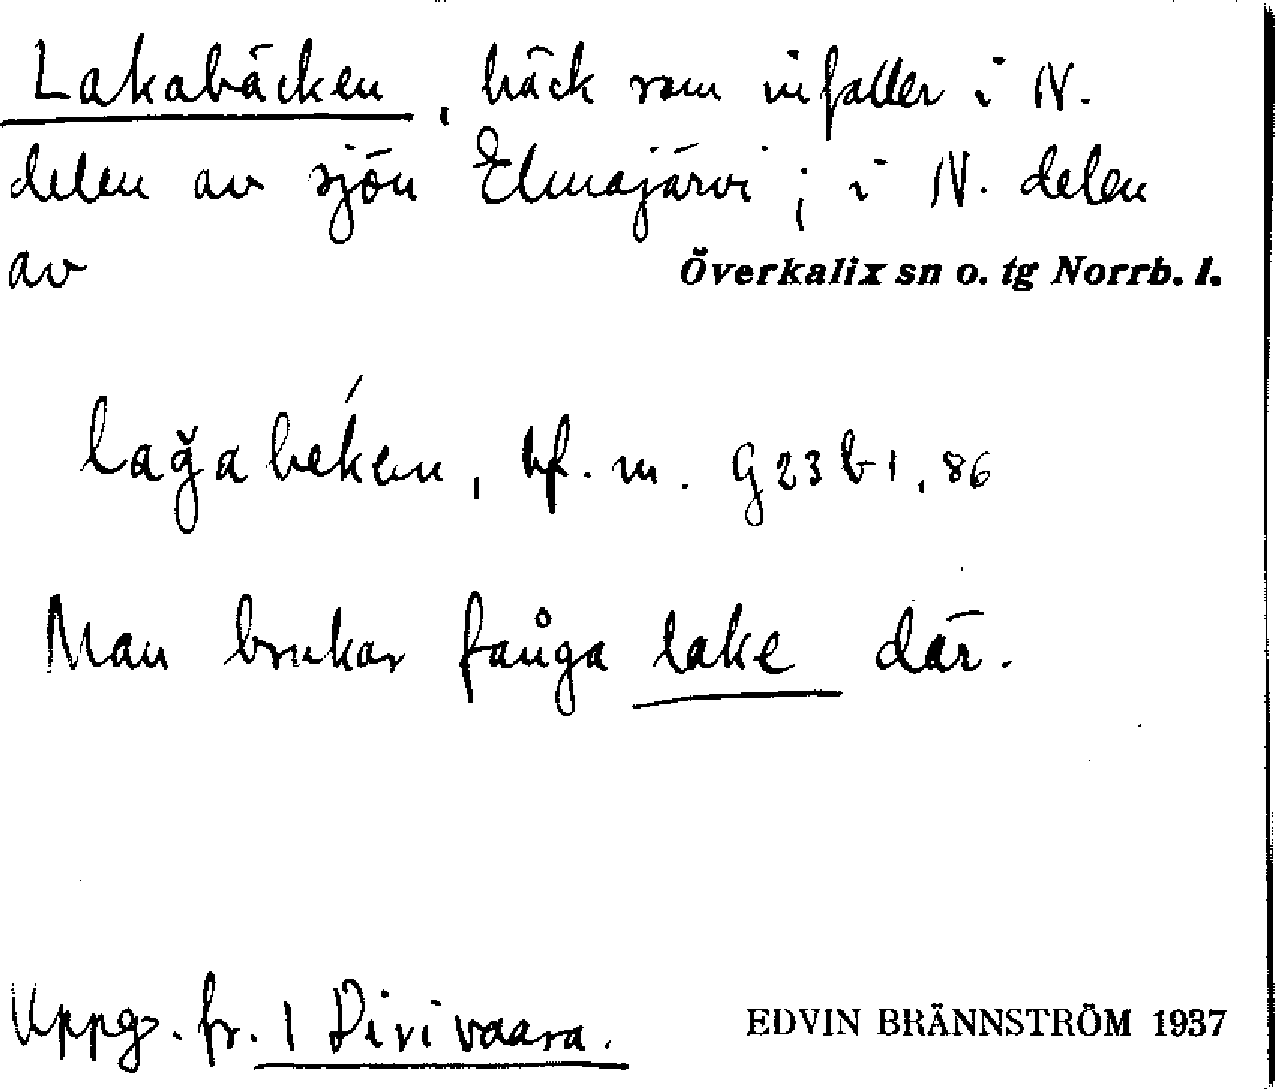 Lakabäcken, bäck som infaller i N.
delen av sjön Elmajärvi; i N. delen
av Överkalix sn o. tg Norrb. l.
lağabéken, bf. m. G23b1, 86
Man brukar fånga lake där.
Uppg. fr. 1 Pirivaara. EDVIN BRÄNNSTRÖM 1937